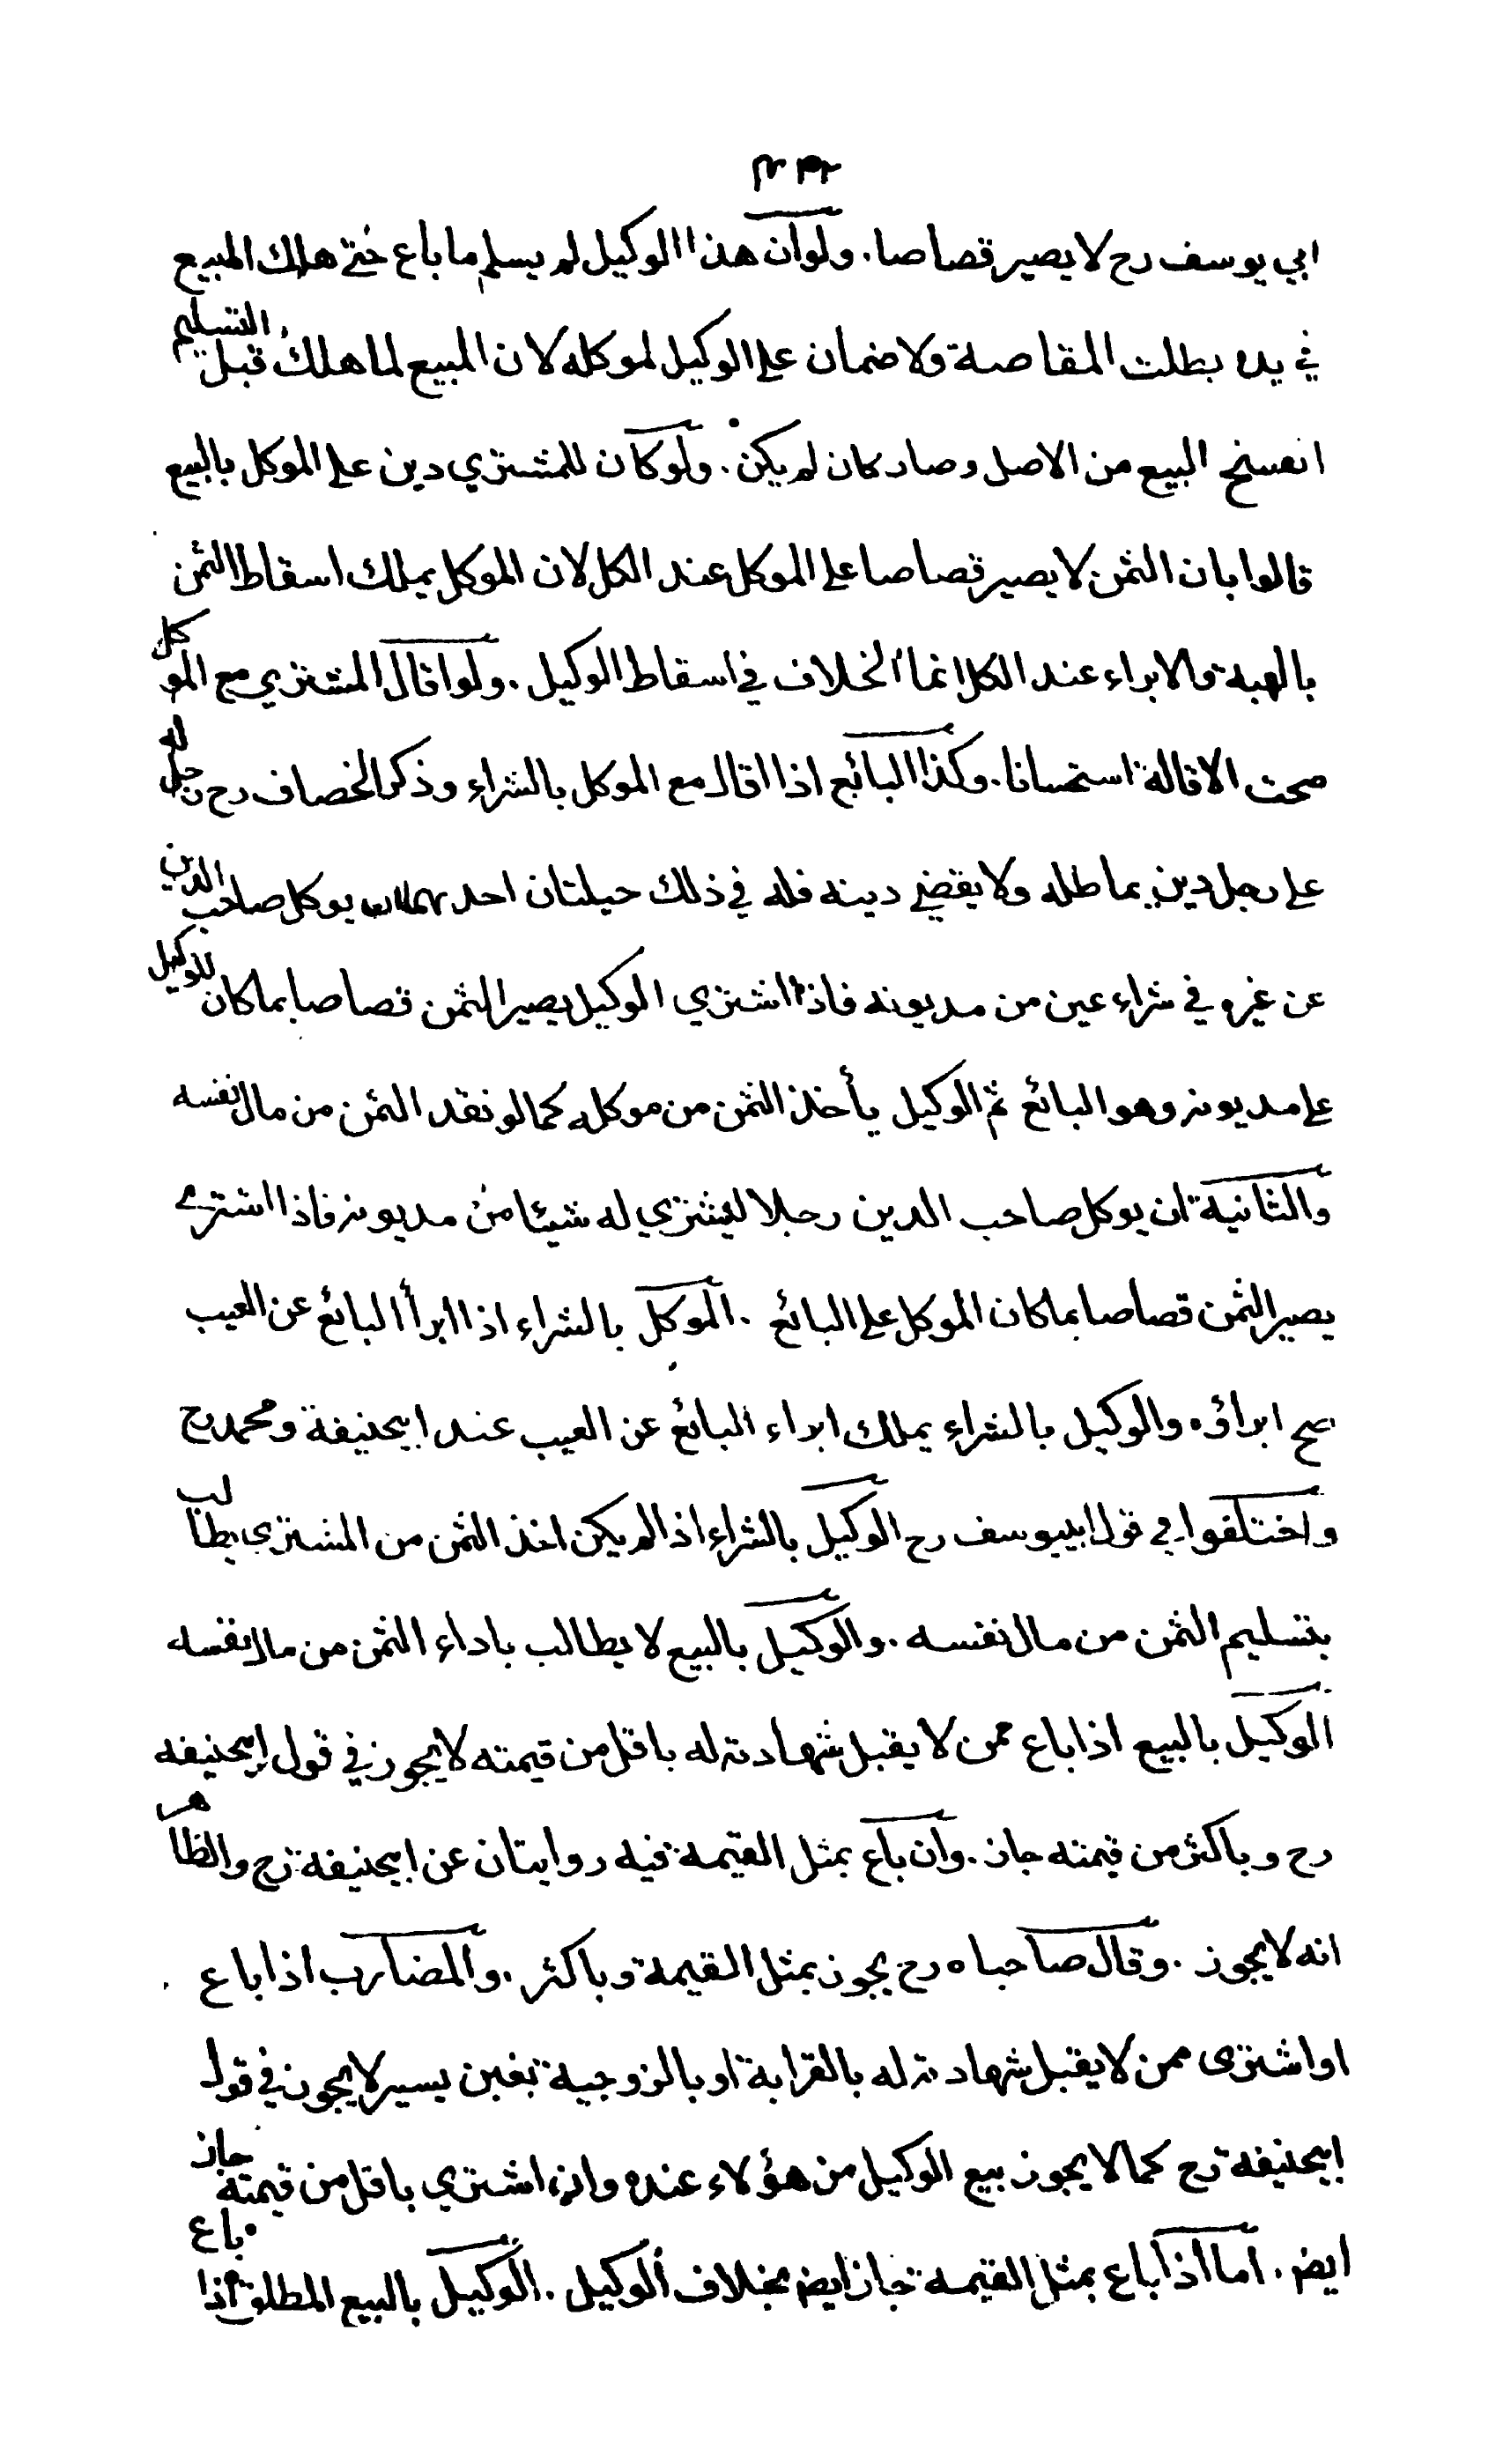 ابي يوسف رح لا يصير قصاصا . ولو ان هذا الوكيل لم يسلم ما باع حتى هلك المبيع
في يده بطلت المقاصة ولا ضمان على الوكيل لموكله لان المبيع لما هلك قبل التسليم
انفسخ البيع من الاصل وصار كان لم يكن . ولو كان للمشتري دين على الموكل بالبيع
قالوا بان الثمن لا يصير قصاصا على الموكل عند الكل لان الموكل يملك اسقاط الثمن
بالهبة والابراء عند الكل انما الخلاف في اسقاط الوكيل . ولو اقال المشتري مع الموكل
صحت الاقالة استحسانا . وكذا البائع اذا اقال مع الموكل بالشراء وذكر الخصاف رح رجل له
على رجل دين يماطله ولا يقضي دينه فله في ذلك حيلتان احدىهما ان يوكل صاحب الدين
عن غيره في شراء عين من مديونه فاذا اشتري الوكيل يصير الثمن قصاصا بما كان للوكيل
على مديونه وهو البائع ثم الوكيل يأخذ الثمن من موكله كما لو نقد الثمن من مال نفسه
والثانية ان يوكل صاحب الدين رجلا ليشتري له شيئا من مديونه فاذا اشترى
يصير الثمن قصاصا بما كان الموكل على البائع . الموكل بالشراء اذا ابرأ البائع عن العيب
صح ابراؤه والوكيل بالشراء يملك ابراء البائع عن العيب عند ابيحنيفة ومحمد رح
واختلفوا في قول ابييوسف رح الوكيل بالشراء اذا لم يكن اخذ الثمن من المشتري يطالب
بتسليم الثمن من مال نفسه . والوكيل بالبيع لا يطالب باداء الثمن من مال نفسه
الوكيل بالبيع اذا باع ممن لا يقبل شهادته له باقل من قيمته لا يجوز في قول ابيحنيفه
رح وباكثر من قيمته جاز . وان باع بمثل القيمة فيه روايتان عن ابيحنيفة رح والظاهر
انه لا يجوز . وقال صاحباه رح يجوز بمثل القيمة وباكثر . والمضارب اذا باع
او اشترى ممن لا يقبل شهادته له بالقرابة او بالزوجية بغبن يسير لا يجوز في قول
ابيحنيفة رح كما لا يجوز بيع الوكيل من هؤلاء عنده وان اشتري باقل من قيمته جاز
ايض . اما اذا باع بمثل القيمة جاز ايض بخلاف الوكيل . الوكيل بالبيع المطلق اذا باع